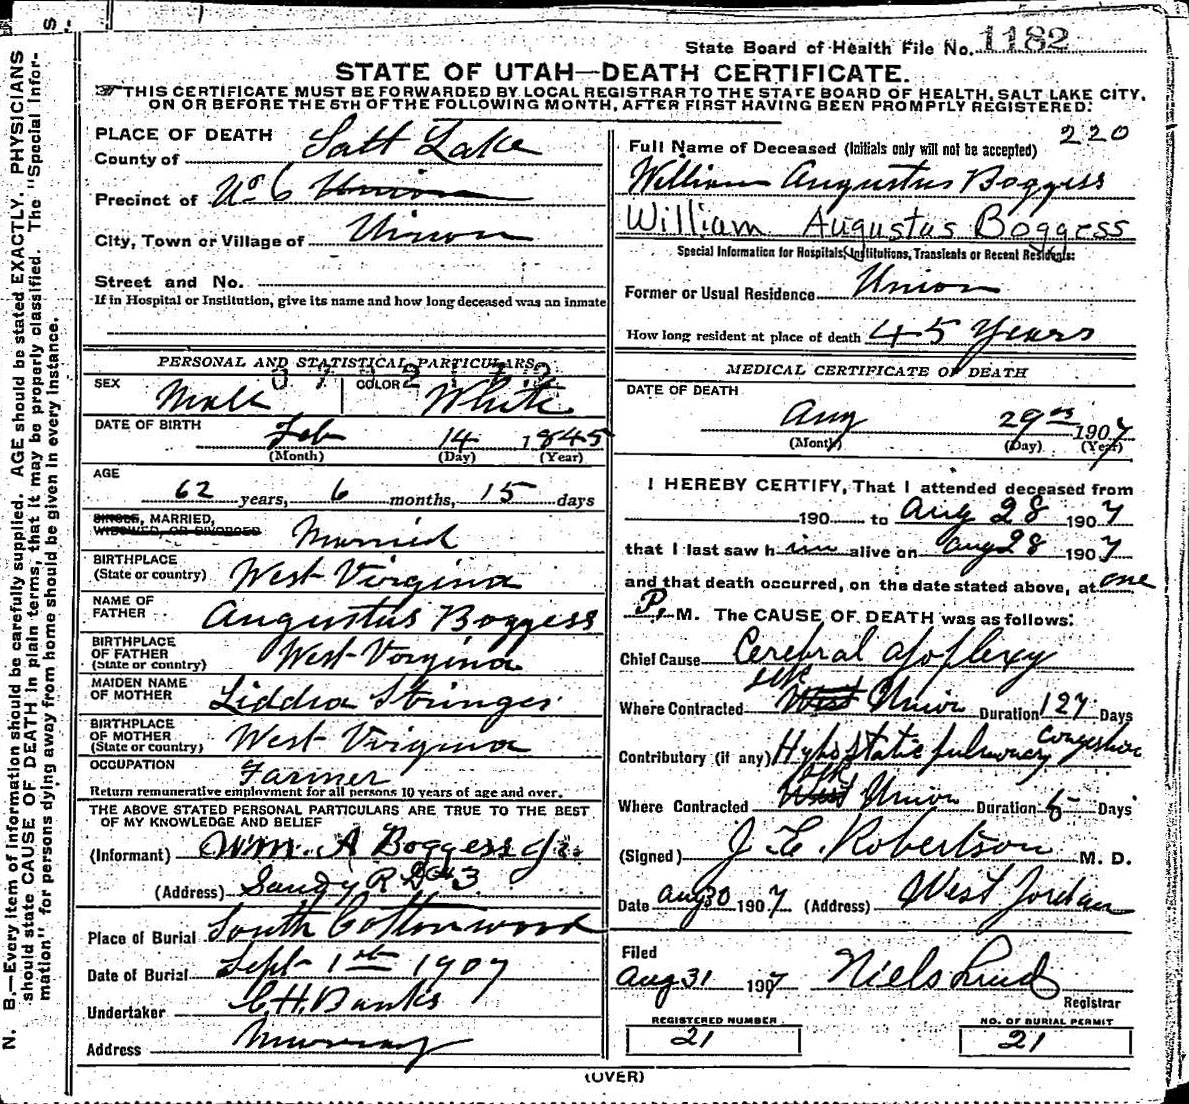 State Board of Health File No. 1182
STATE OF UTAH—DEATH CERTIFICATE.
THIS CERTIFICATE MUST BE FORWARDED BY LOCAL REGISTRAR TO THE STATE BOARD OF HEALTH, SALT LAKE CITY,
ON OR BEFORE THE 5TH OF THE FOLLOWING MONTH, AFTER FIRST HAVING BEEN PROMPTLY REGISTERED.
N. B.—Every item of information should be carefully supplied. AGE should be stated EXACTLY. PHYSICIANS
should state CAUSE OF DEATH in plain terms, that it may be properly classified. The "Special Infor-
mation" for persons dying away from home should be given in every instance.
PLACE OF DEATH
County of Salt Lake
Precinct of No 6 Union
City, Town or Village of Union
Street and No.
If in Hospital or Institution, give its name and how long deceased was an inmate
PERSONAL AND STATISTICAL PARTICULARS
SEX Male COLOR White
DATE OF BIRTH Feb 14 1845
(Month) (Day) (Year)
AGE 62 years, 6 months, 15 days
SINGLE, MARRIED,
WIDOWED, OR DIVORCED Married
BIRTHPLACE
(State or country) West Virginia
NAME OF
FATHER Augustus Boggess
BIRTHPLACE
OF FATHER
(State or country) West Virginia
MAIDEN NAME
OF MOTHER Liddia Stringer
BIRTHPLACE
OF MOTHER
(State or country) West Virginia
OCCUPATION Farmer
Return remunerative employment for all persons 10 years of age and over.
THE ABOVE STATED PERSONAL PARTICULARS ARE TRUE TO THE BEST
OF MY KNOWLEDGE AND BELIEF
(Informant) Wm. A Boggess Jr.
(Address) Sandy R D #3
Place of Burial South Cottonwood
Date of Burial Sept 1st 1907
Undertaker C.H. Banks
Address Murray
220
Full Name of Deceased (Initials only will not be accepted)
William Augustus Boggess
William Augustus Boggess
Special Information for Hospitals, Institutions, Transients or Recent Residents:
Former or Usual Residence Union
How long resident at place of death 45 Years
MEDICAL CERTIFICATE OF DEATH
DATE OF DEATH
Aug 29 1907
(Month) (Day) (Year)
I HEREBY CERTIFY, That I attended deceased from
190 to Aug 28 1907
that I last saw him alive on Aug 28 1907
and that death occurred, on the date stated above, at one
P. M. The CAUSE OF DEATH was as follows:
Chief Cause Cerebral Apoplexy
Where Contracted West Union Duration 127 Days
Contributory (if any) Hypostatic pulmonary congestion
Where Contracted West Union Duration Days
(Signed) J. E. Robertson M. D.
Date Aug 30 1907 (Address) West Jordan
Filed
Aug 31 1907 Niels Lind
Registrar
REGISTERED NUMBER NO. OF BURIAL PERMIT
21 21
(OVER)